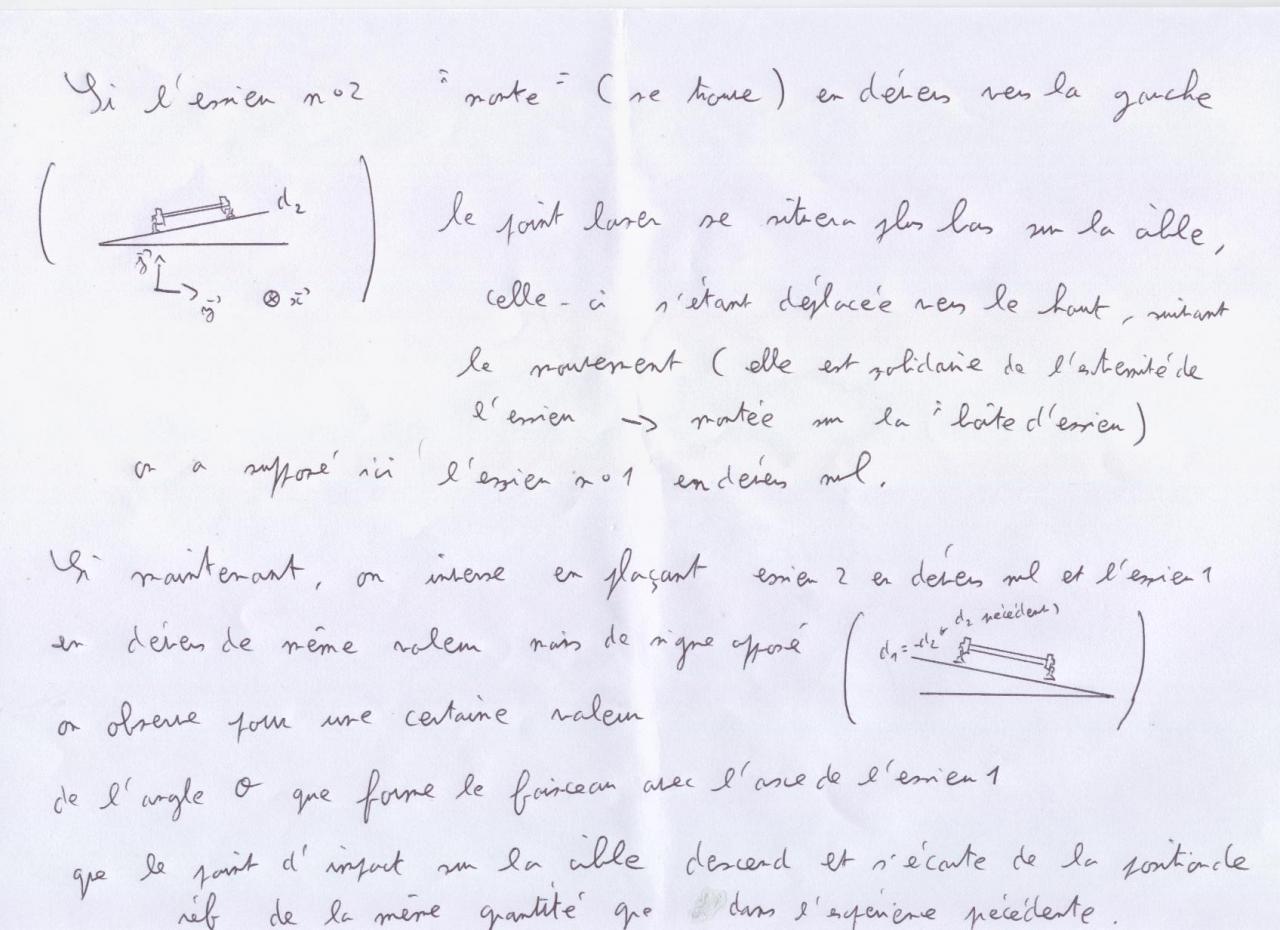 Si l'essieu n°2 "monte" (se trouve) en dévers vers la gauche
d₂
z⃗
y⃗ ⊗ x⃗
le point laser se situera plus bas sur la cible,
celle-ci s'étant déplacée vers le haut, suivant
le mouvement (elle est solidaire de l'extrémité de
l'essieu → montée sur la "boîte d'essieu)
on a supposé ici l'essieu n°1 en dévers nul.
Si maintenant, on inverse en plaçant essieu 2 en dévers nul et l'essieu 1
en dévers de même valeur mais de signe opposé
d₁ = -d₂ d₂ précédent)
on observe pour une certaine valeur
de l'angle θ que forme le faisceau avec l'axe de l'essieu 1
que le point d'impact sur la cible descend et s'écarte de la position de
réf de la même quantité que dans l'expérience précédente.